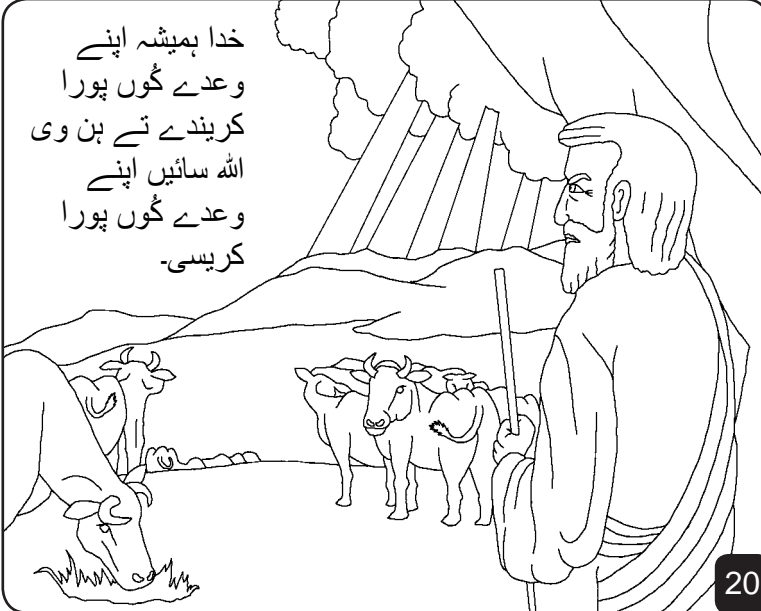 خدا ہمیشہ اپنے
وعدے کُوں پورا
کریندے تے ہن وی
اللہ سائیں اپنے
وعدے کُوں پورا
کریسی۔
20